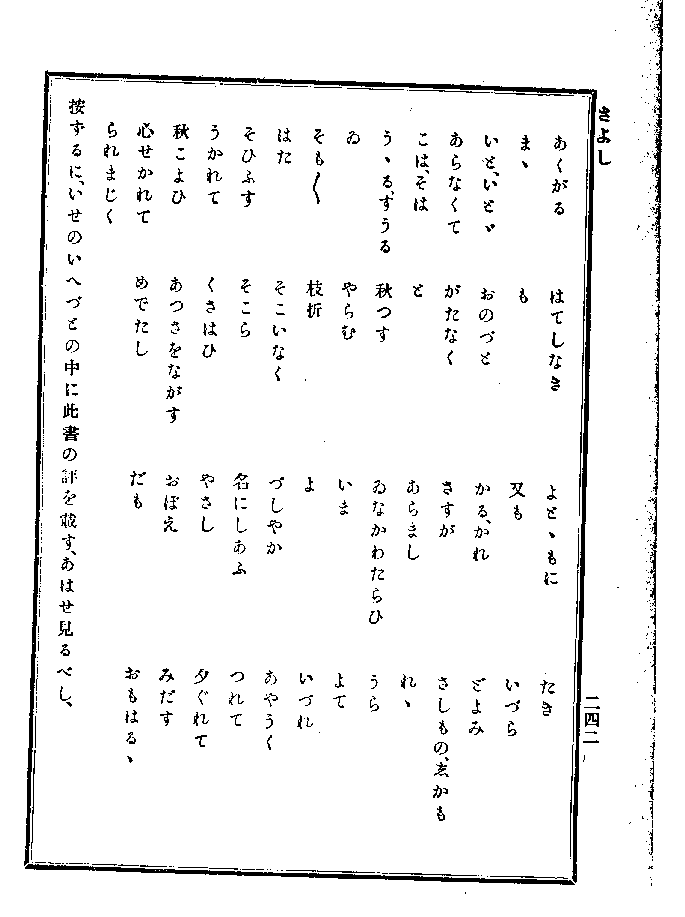 さよし
二四二
あくがる　はてしなき　よとゝもに　たき
まゝ　も　又も　いづら
いと、いとゞ　おのづと　かる、かれ　どよみ
あらなくて　がたなく　さすが　さしもの、志かも
こは、そは　と　あらまし　れゝ
うゝる、ずうる　秋つす　ゐなかわたらひ　うら
ゐ　やらむ　いま　よて
そも〳〵　枝折　よ　いづれ
はた　そこいなく　づしやか　あやうく
そひふす　そこら　名にしあふ　つれて
うかれて　くさはひ　やさし　夕ぐれて
秋こよひ　あつさをながす　おぼえ　みだす
心せかれて　めでたし　だも　おもはるゝ
られまじく
按ずるに、いせのいへづとの中に此書の評を載す、あはせ見るべし、